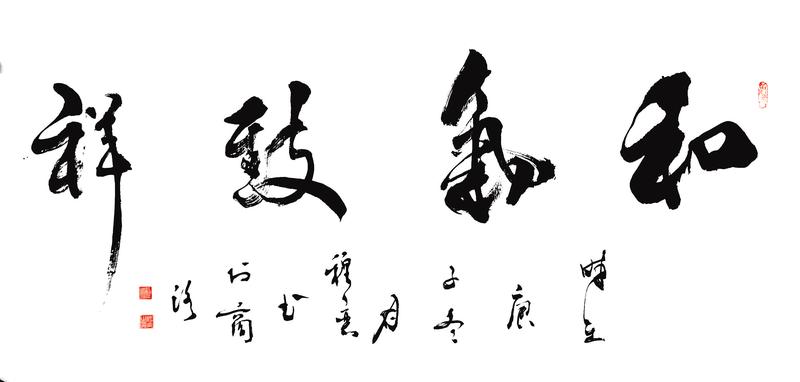 和氣致祥
時在
庚
子冬
月
書
於商
洛